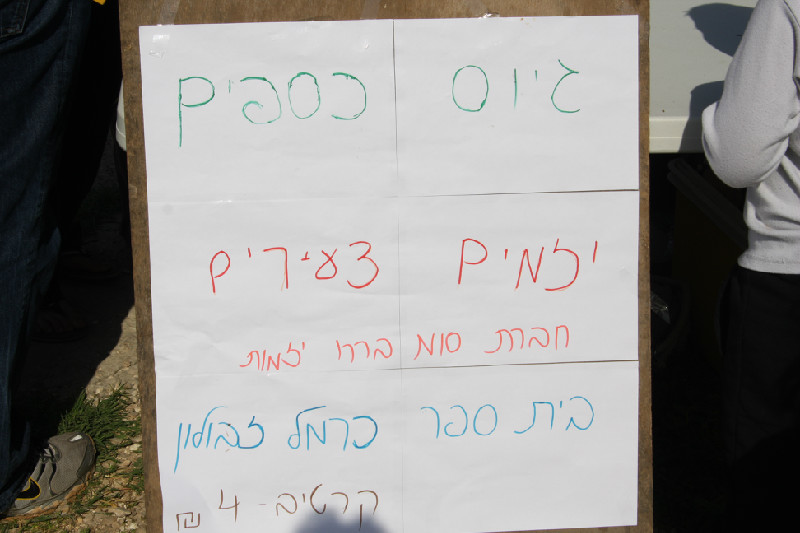 גיוס כספים
יזמים צעירים
חברת סומ בררו יזמות
בית ספר כרמל זבולון
קרטיב - 4 ₪